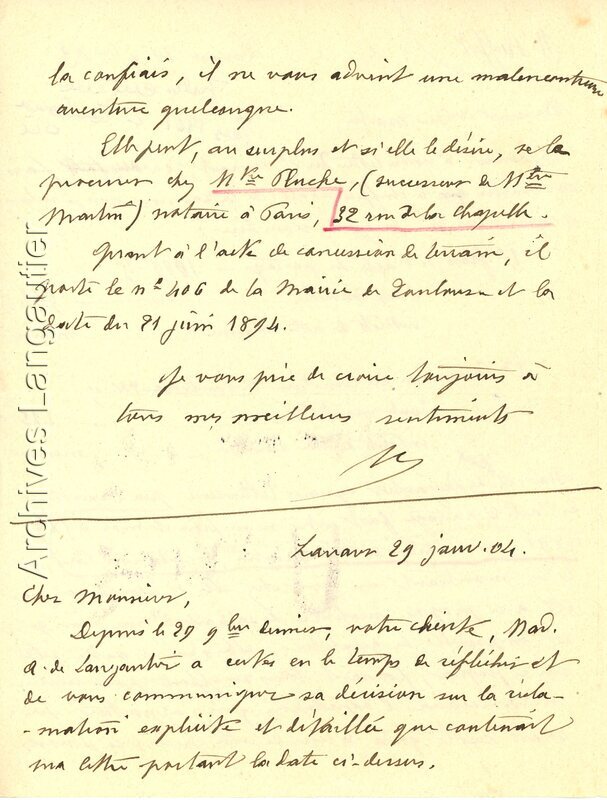 la confiais, il ne vous advint une malencontreuse
aventure quelconque.
Elle peut, au surplus et si elle le désire, se la
procurer chez Mtre Pluche, (successeur de Mtre
Martin) notaire à Paris, 32 rue de la Chapelle.
Quant à l'acte de concession de terrain, il
porte le no 406 de la Mairie de Toulouse et la
date du 21 juin 1894.
Je vous prie de croire toujours à
tous mes meilleurs sentiments
Lavaur 29 janv. 04.
Cher Monsieur,
Depuis le 29 9bre dernier, votre cliente, Mad.
A. de Langautier a certes eu le temps de réfléchir et
de vous communiquer sa décision sur la récla-
-mation explicite et détaillée que contenait
ma lettre portant la date ci-dessus.
Archives Langautier